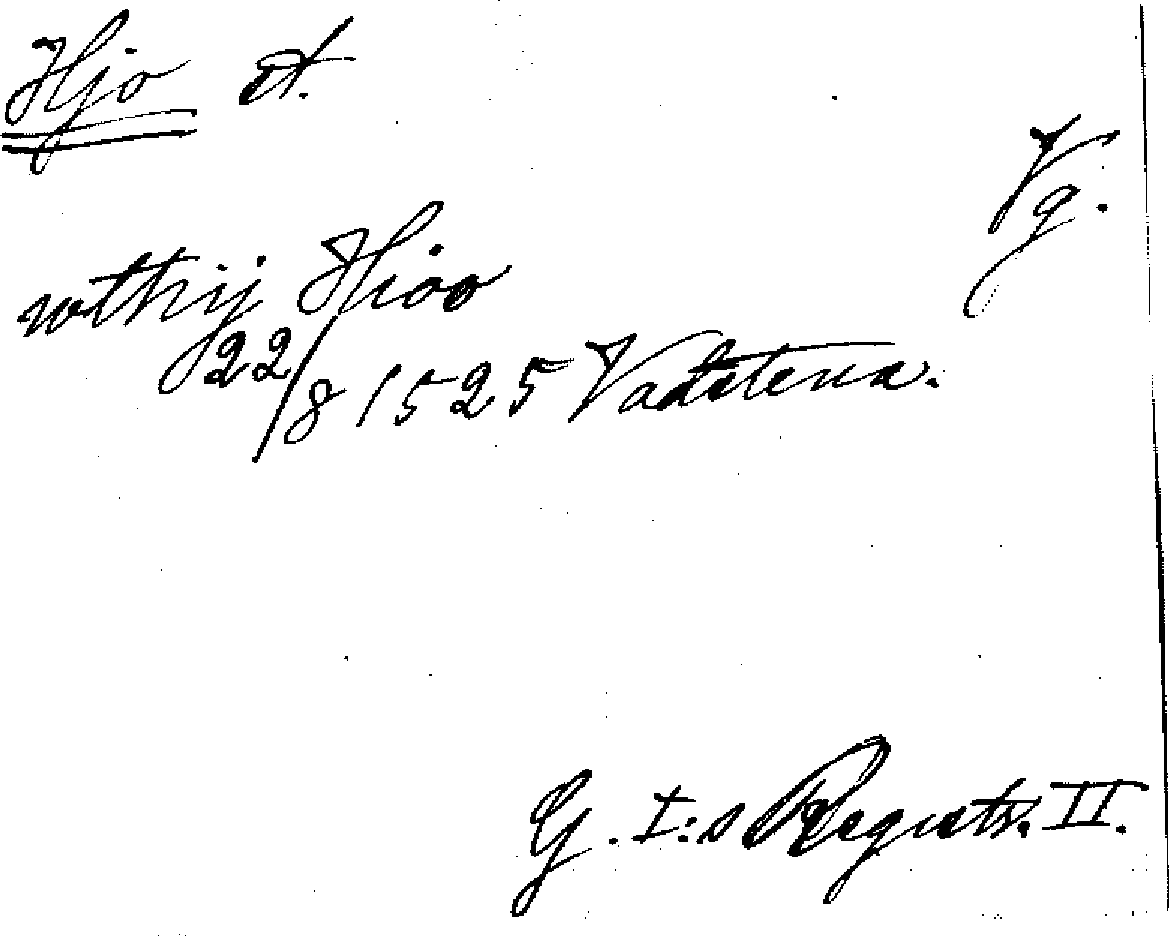 Hjo st.
Vg.
wthij Hioo
22/8 1525 Vadstena.
G. I:s Registr. II.